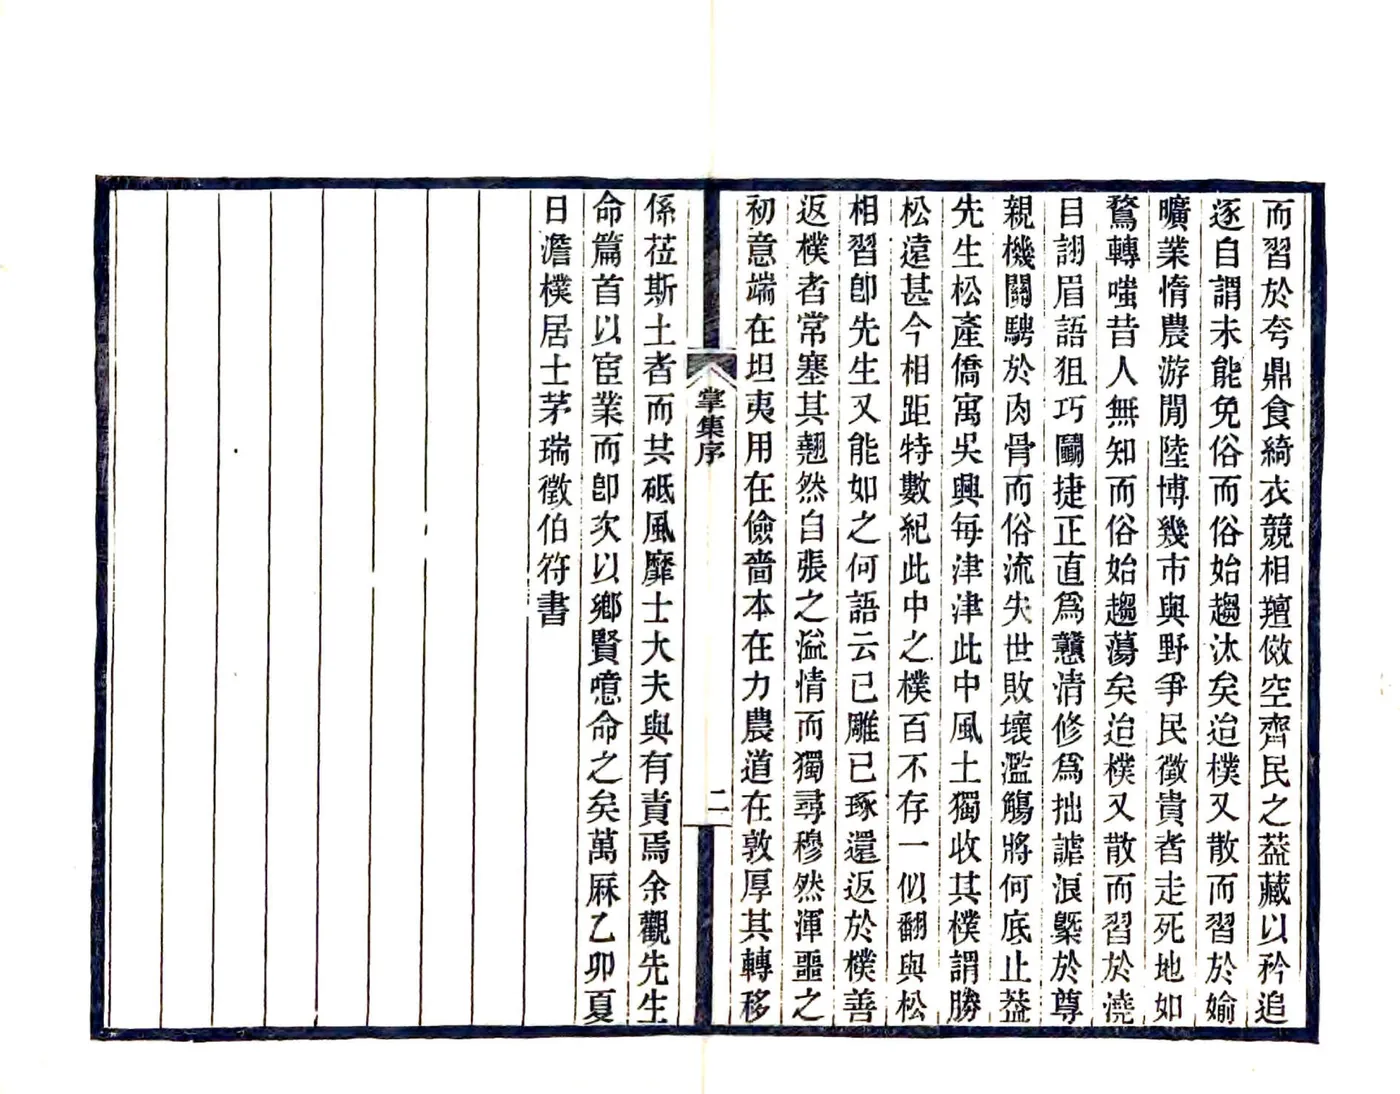 而習於夸鼎食綺衣競相羶倣空齊民之葢藏以矜追
逐自謂未能免俗而俗始趨汰矣迨樸又散而習於媮
曠業惰農游閒陸博幾市與野爭民徵貴者走死地如
鶩轉嗤昔人無知而俗始趨蕩矣迨樸又散而習於澆
目詡眉語狙巧鬭捷正直爲戇清修爲拙謔浪槩於尊
親機關騁於肉骨而俗流失世敗壞濫觴將何底止葢
先生松產僑寓吳興每津津此中風土獨收其樸謂勝
松遠甚今相距特數紀此中之樸百不存一似翻與松
相習卽先生又能如之何語云已雕已琢還返於樸善
返樸者常塞其翹然自張之溢情而獨尋穆然渾噩之
初意端在坦夷用在儉嗇本在力農道在敦厚其轉移
掌集序
二
係莅斯土者而其砥風靡士大夫與有責焉余觀先生
命篇首以宦業而卽次以鄉賢噫命之矣萬厤乙卯夏
日澹樸居士茅瑞徵伯符書